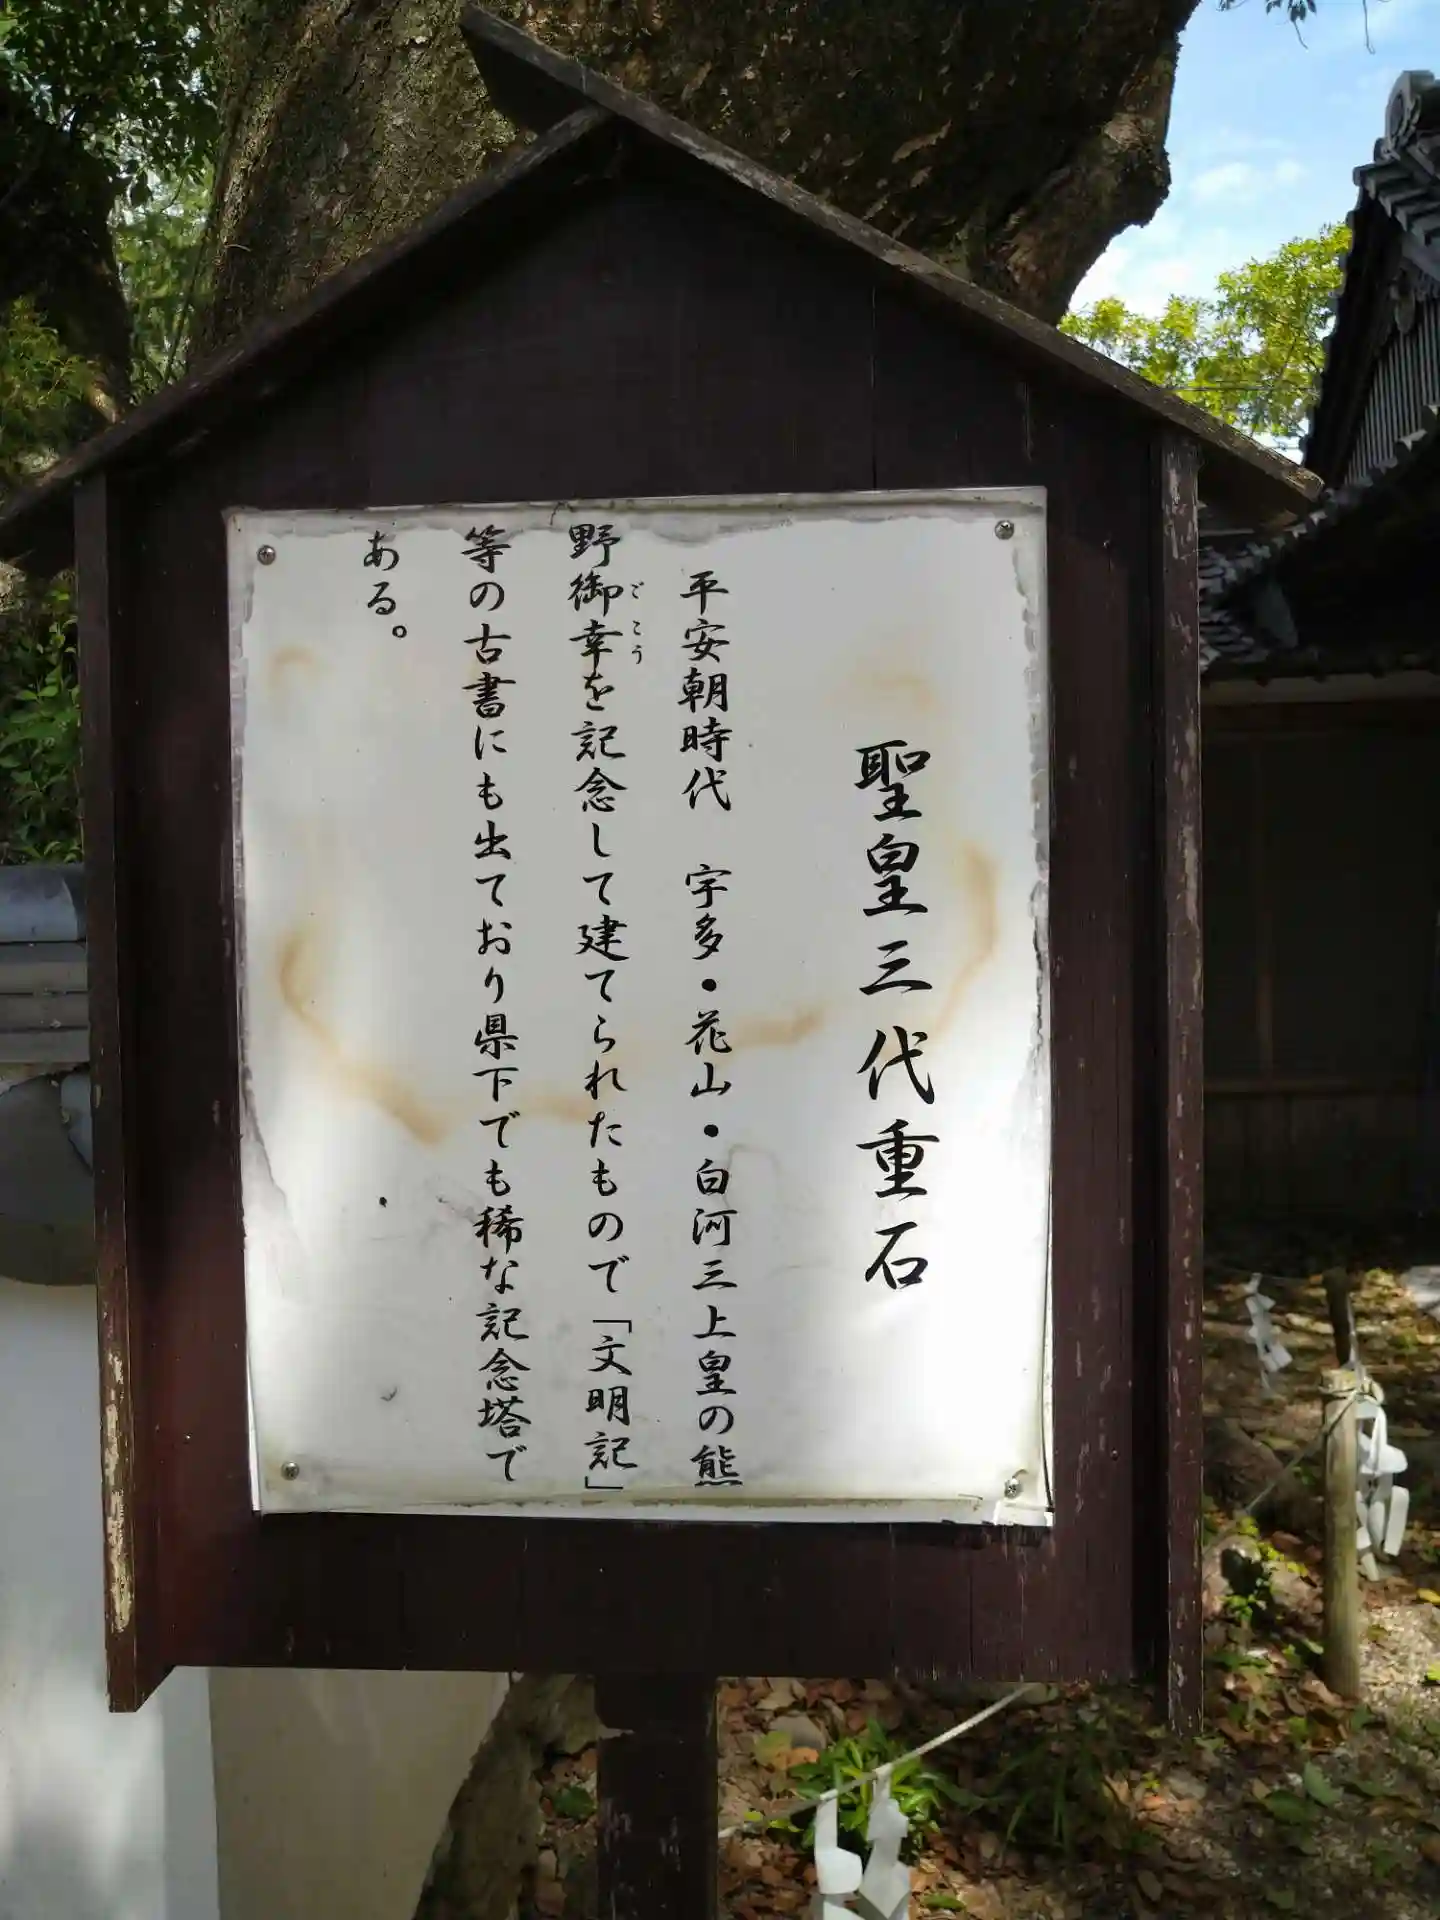 聖皇三代重石
平安朝時代　宇多・花山・白河三上皇の熊
野御幸を記念して建てられたもので「文明記」
ごこう
等の古書にも出ており県下でも稀な記念塔で
ある。